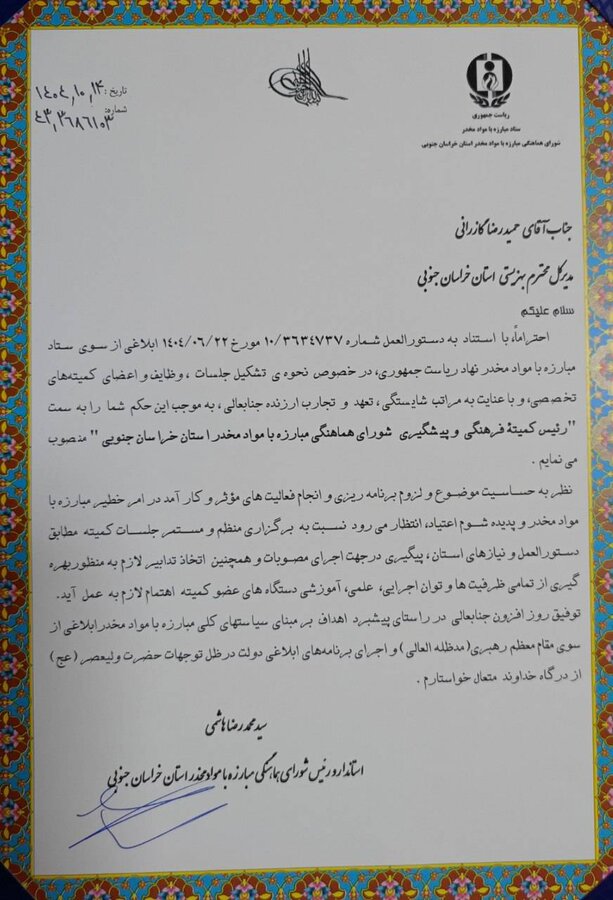 ریاست جمهوری
ستاد مبارزه با مواد مخدر
شورای هماهنگی مبارزه با مواد مخدر استان خراسان جنوبی
تاریخ: ۱۴۰۴,۱۰,۱۴
شماره: ۴۳,۳۶۸۶۱۰۳
جناب آقای حمیدرضا گازرانی
مدیرکل محترم بهزیستی استان خراسان جنوبی
سلام علیکم
احتراماً، با استناد به دستورالعمل شماره ۱۰/۳۶۳۴۷۳۷ مورخ ۱۴۰۴/۰۶/۲۲ ابلاغی از سوی ستاد
مبارزه با مواد مخدر نهاد ریاست جمهوری، در خصوص نحوه ی تشکیل جلسات ، وظایف و اعضای کمیته‌های
تخصصی، و با عنایت به مراتب شایستگی، تعهد و تجارب ارزنده جنابعالی، به موجب این حکم شما را به سمت
"رئیس کمیتهٔ فرهنگی و پیشگیری شورای هماهنگی مبارزه با مواد مخدر استان خراسان جنوبی" منصوب
می نمایم .
نظر به حساسیت موضوع و لزوم برنامه ریزی و انجام فعالیت های مؤثر و کار آمد در امر خطیر مبارزه با
مواد مخدر و پدیده شوم اعتیاد، انتظار می رود نسبت به برگزاری منظم و مستمر جلسات کمیته مطابق
دستورالعمل و نیازهای استان، پیگیری در جهت اجرای مصوبات و همچنین اتخاذ تدابیر لازم به منظور بهره
گیری از تمامی ظرفیت ها و توان اجرایی، علمی، آموزشی دستگاه های عضو کمیته اهتمام لازم به عمل آید.
توفیق روز افزون جنابعالی در راستای پیشبرد اهداف بر مبنای سیاستهای کلی مبارزه با مواد مخدر ابلاغی از
سوی مقام معظم رهبری(مدظله العالی) و اجرای برنامه‌های ابلاغی دولت در ظل توجهات حضرت ولیعصر (عج)
از درگاه خداوند متعال خواستارم .
سید محمد رضا هاشمی
استاندار و رئیس شورای هماهنگی مبارزه با مواد مخدر استان خراسان جنوبی